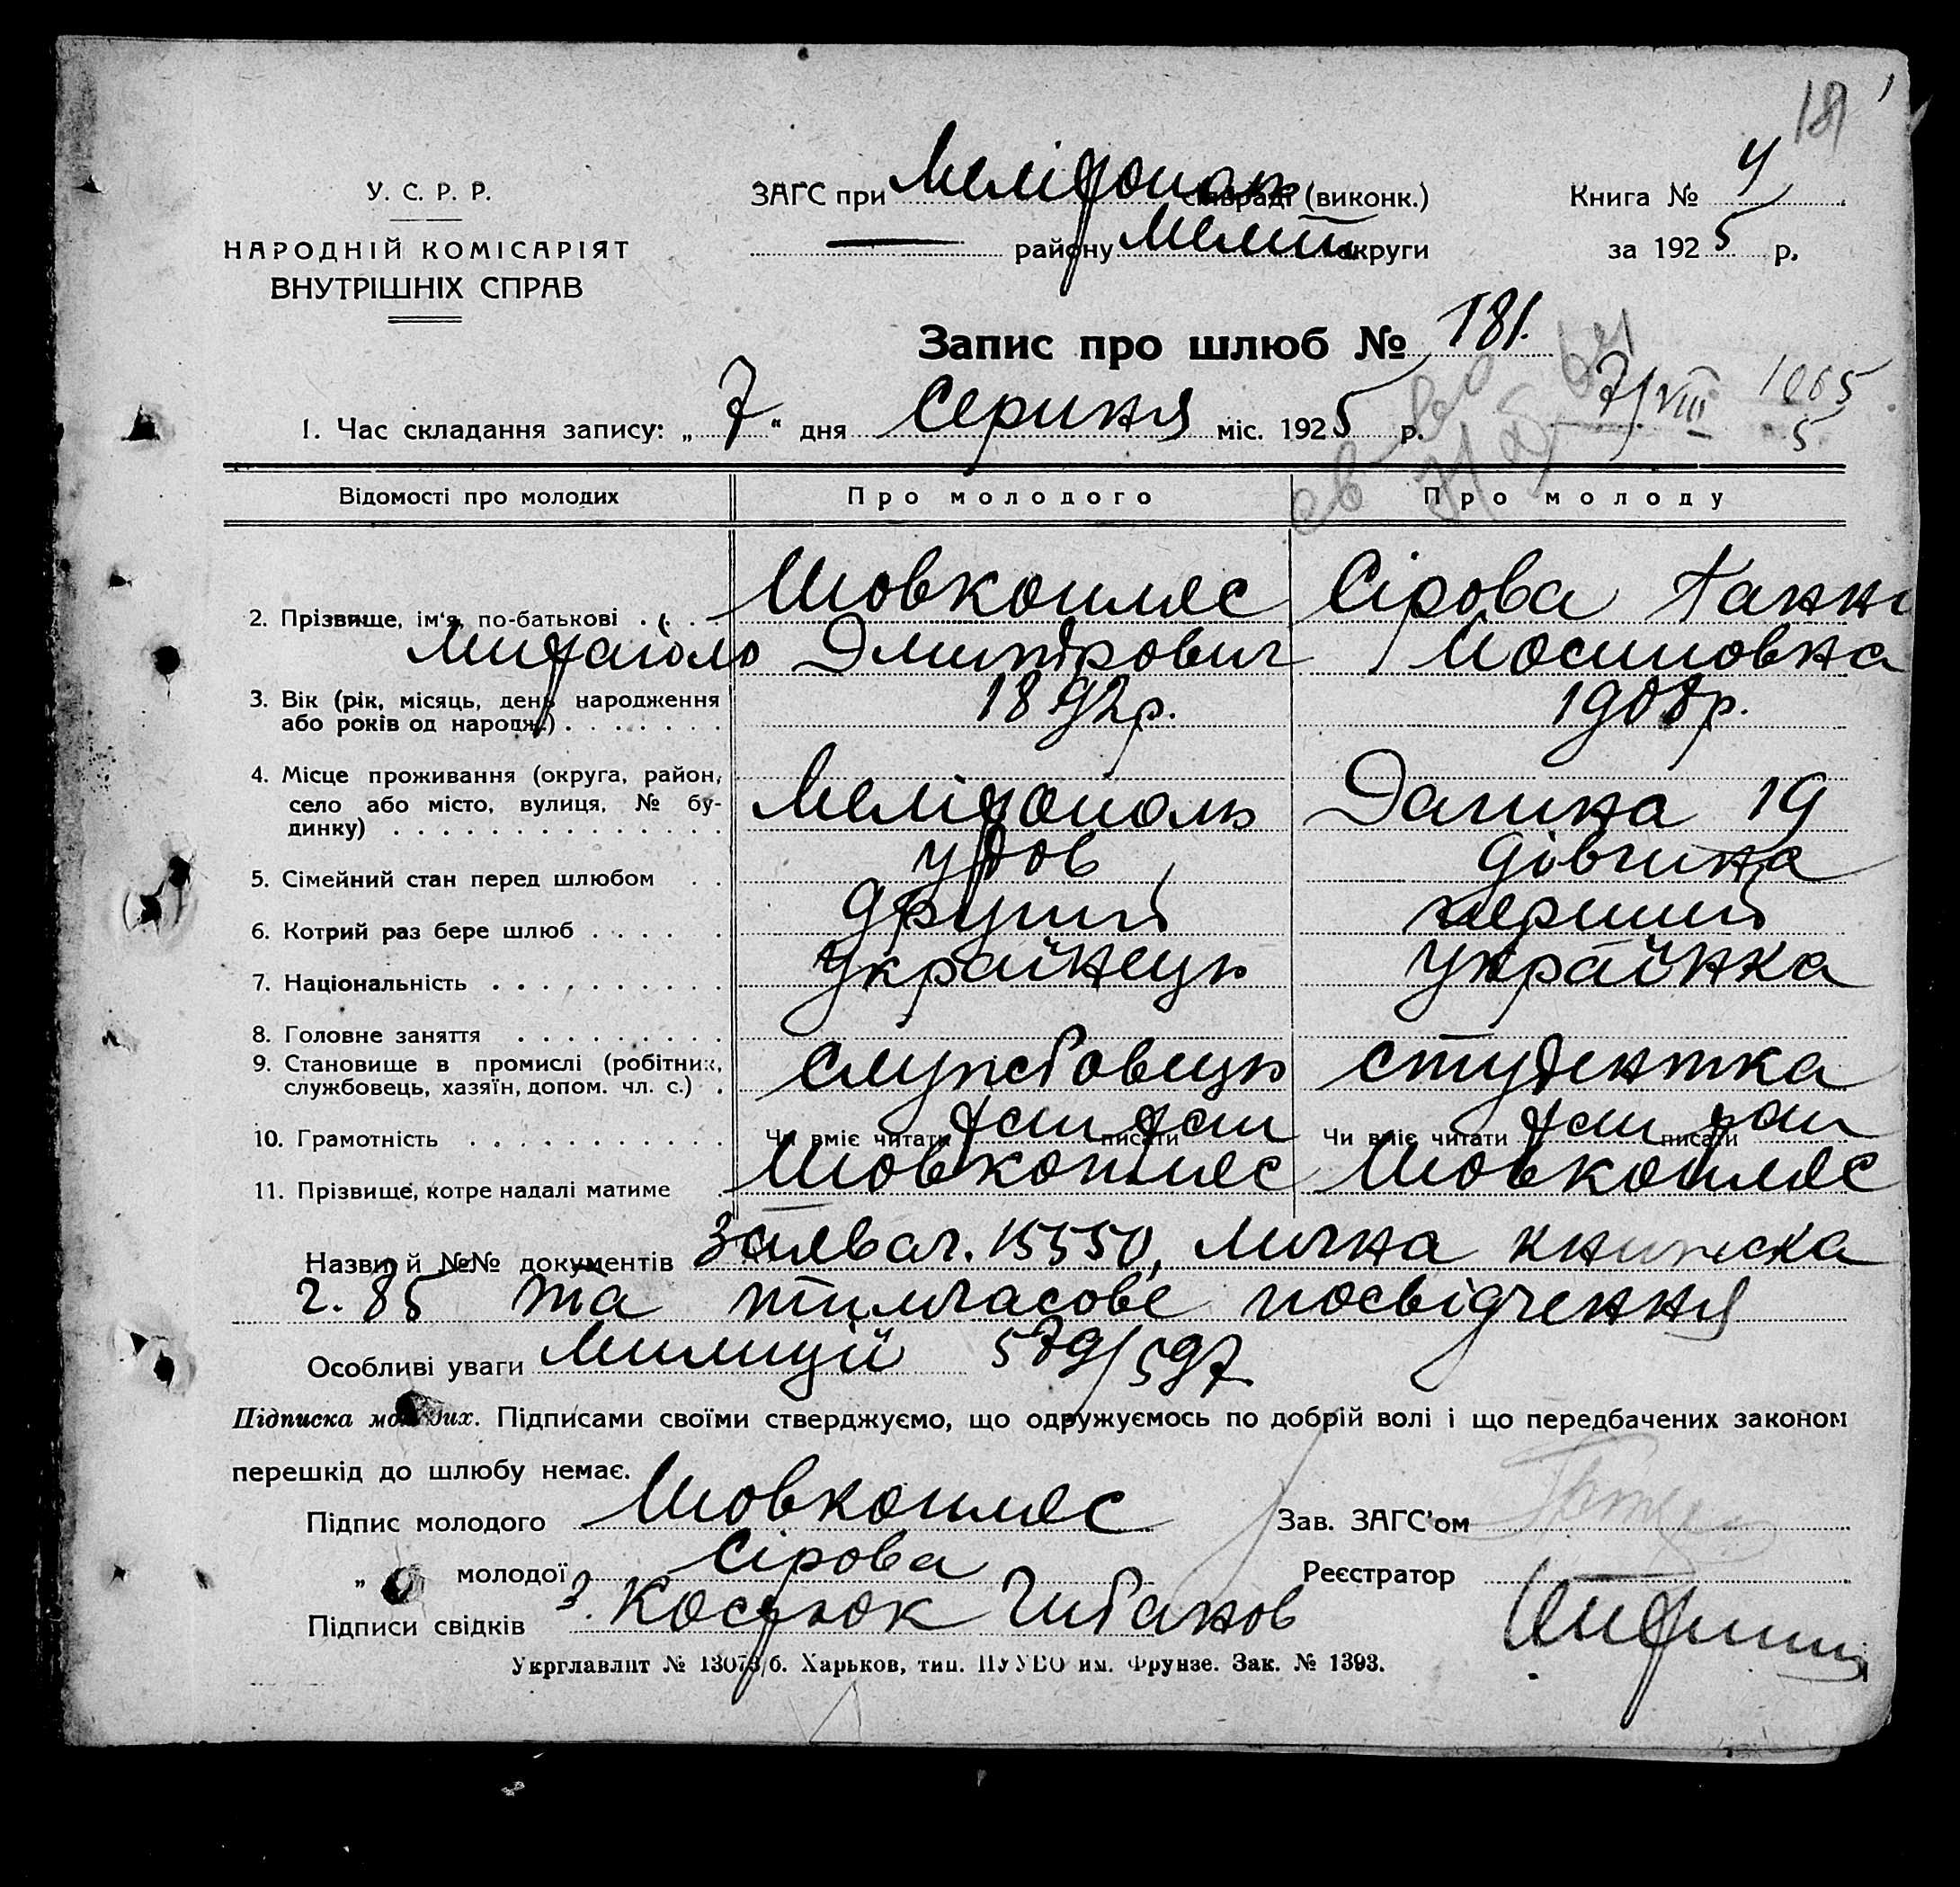 181
У. С. Р. Р.
НАРОДНІЙ КОМІСАРІЯТ
ВНУТРІШНІХ СПРАВ
ЗАГС при Меліτопол сільраді (виконк.)
району Меліт округи
Книга № 4
за 1925 р.
Запис про шлюб № 181.
1. Час складання запису: „7" дня Серпня міс. 1925 р.
7/VIII
Відомості про молодих Про молодого Про молоду
2. Прізвище, ім'я, по-батькові Шовкопляс Сірова Ганна
Михайло Дмитрович Йосиповна
3. Вік (рік, місяць, день народження 1892р. 1908р.
або років од народж.)
4. Місце проживання (округа, район,
село або місто, вулиця, № бу-
динку) Мелітополь Дачна 19
5. Сімейний стан перед шлюбом удов дівчина
6. Котрий раз бере шлюб другий перший
7. Національність українець українка
8. Головне заняття
9. Становище в промислі (робітник,
службовець, хазяїн, допом. чл. с.) службовець студентка
10. Грамотність Чи вміє читати так писати так Чи вміє читати так писати так
11. Прізвище, котре надалі матиме Шовкопляс Шовкопляс
Назви й №№ документів Заява ч. 15550, лична книжка
ч. 85 та тимчасове посвідчення
Особливі уваги милиції 579/597
Підписка молодих. Підписами своїми стверджуємо, що одружуємось по добрій волі і що передбачених законом
перешкід до шлюбу немає.
Підпис молодого Шовкопляс Зав. ЗАГС'ом
„ молодої Сірова Реєстратор
Підписи свідків З. Костюк Чибанов
Укрглавлит № 13073/б. Харьков, тип. ПУУВО им. Фрунзе. Зак. № 1393.